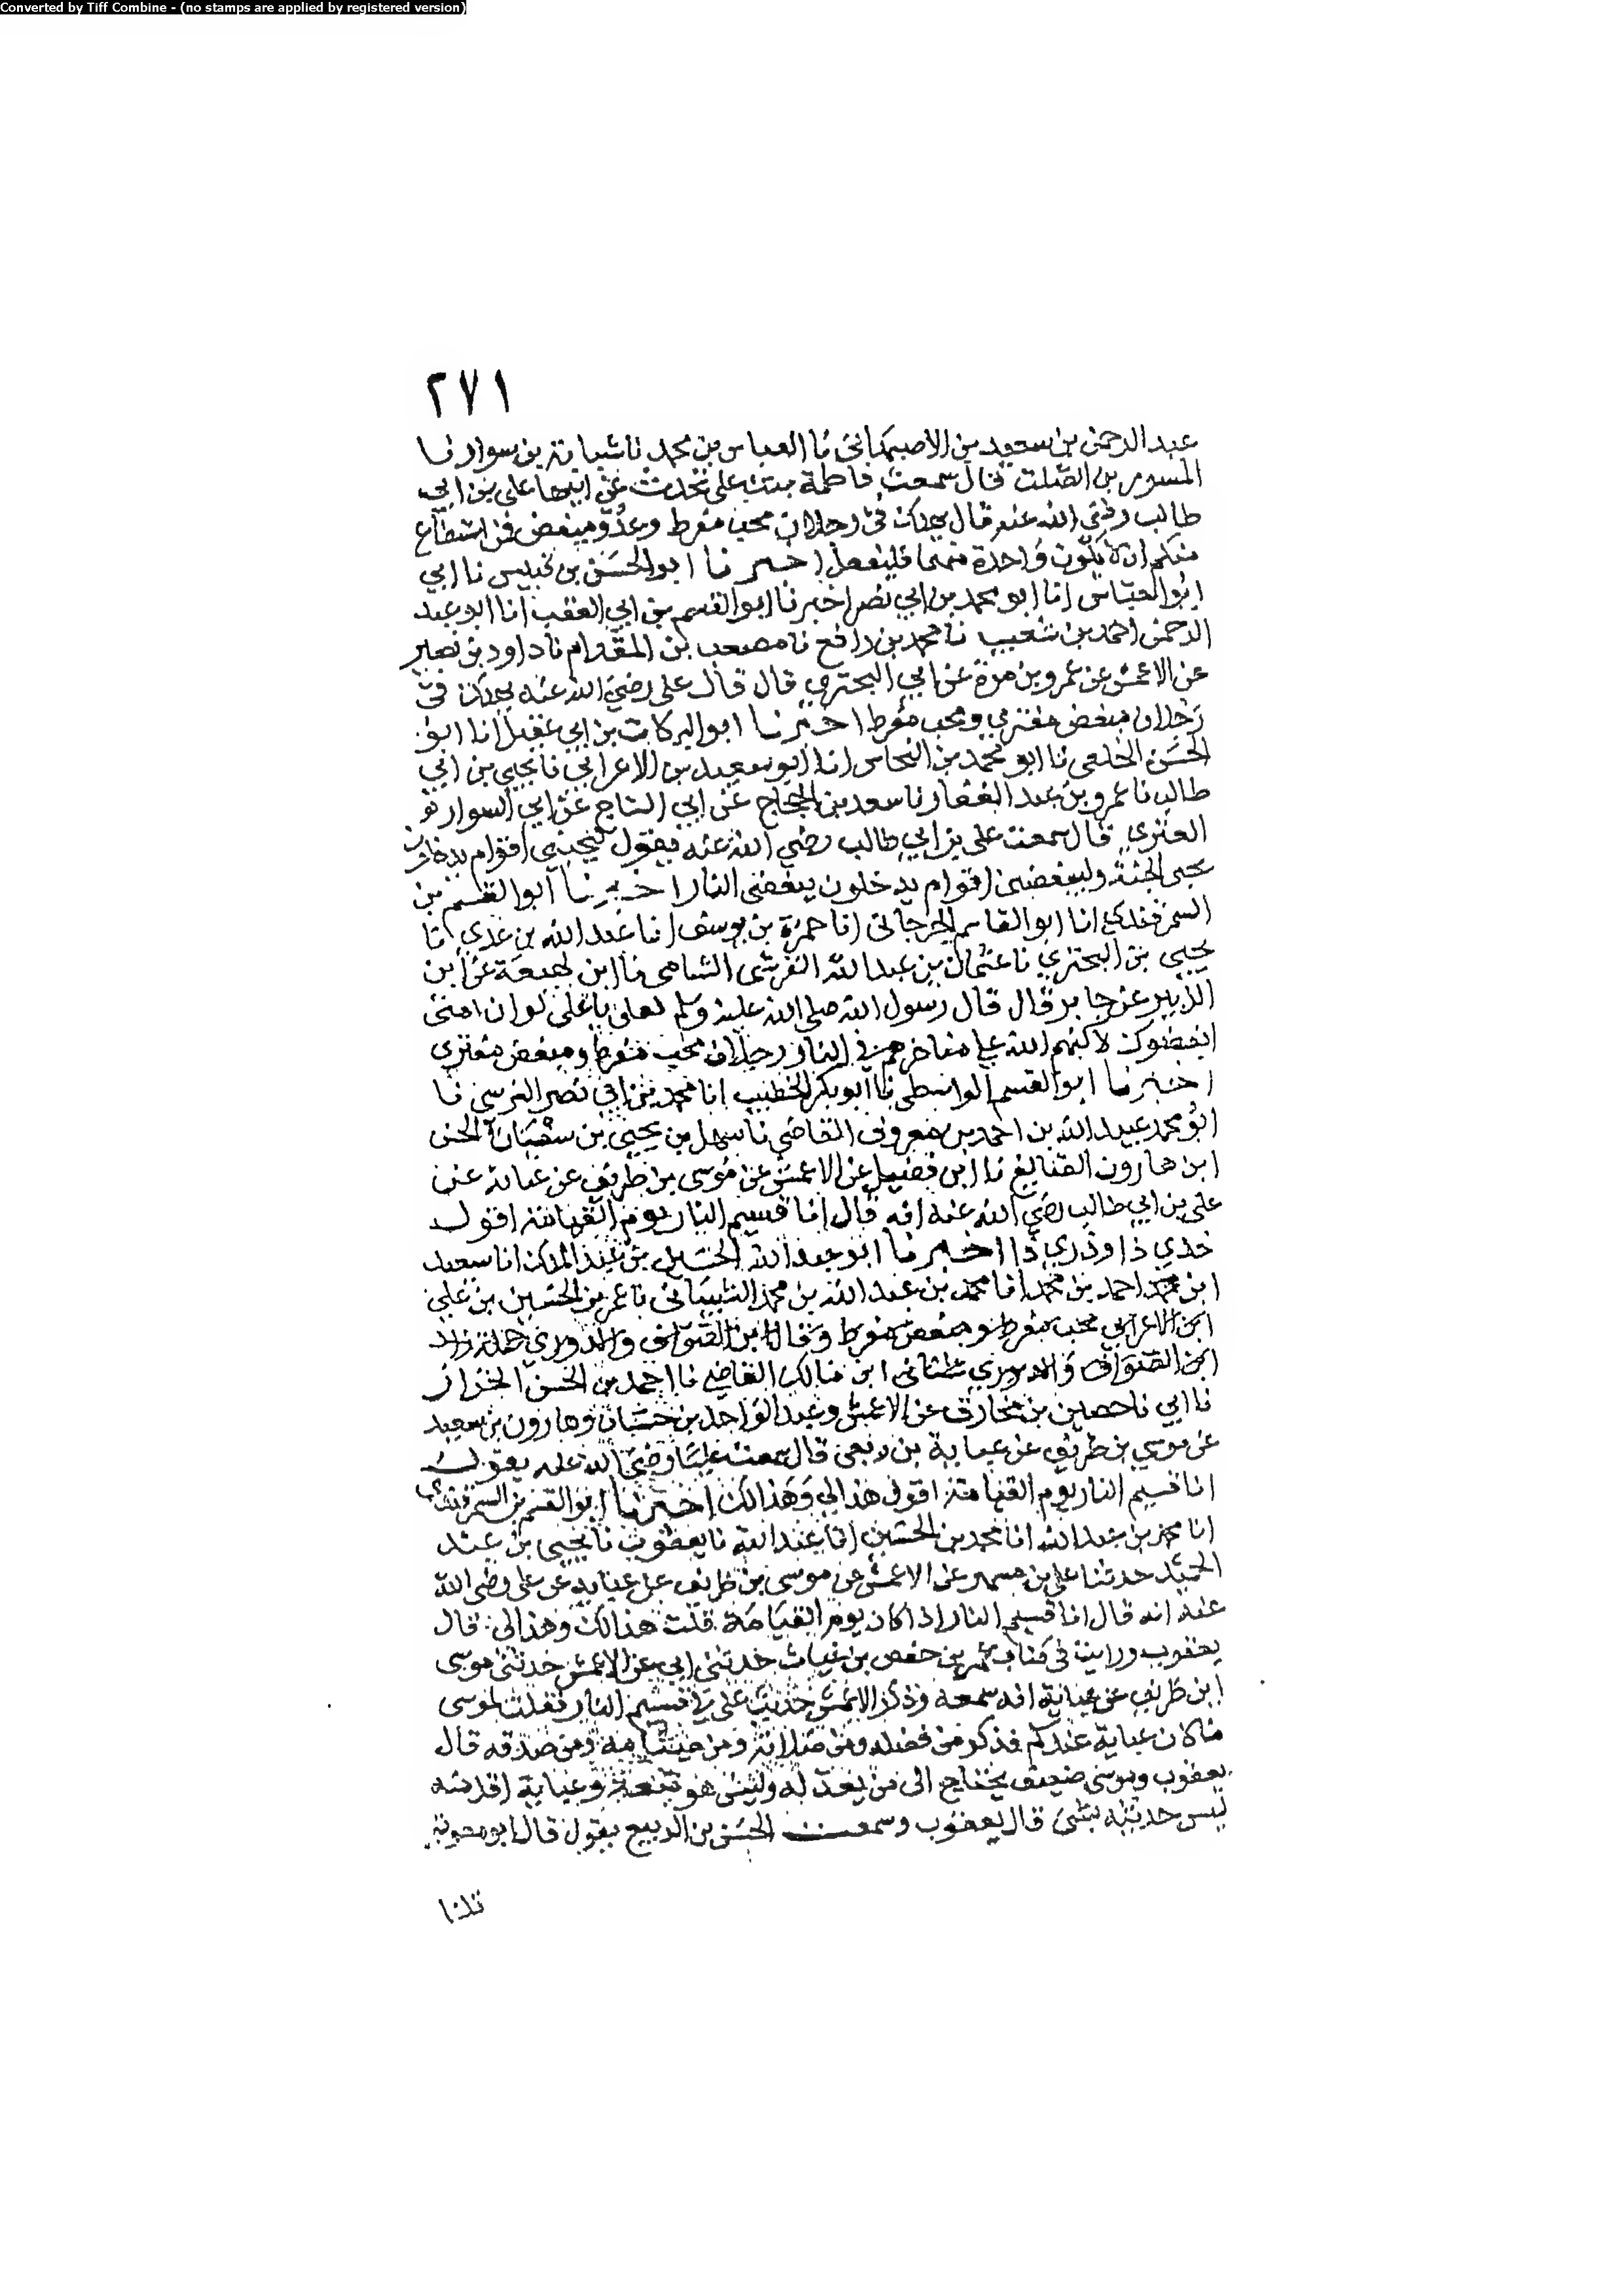 Converted by Tiff Combine - (no stamps are applied by registered version)
٢٧١
عبد الرحمن بن سعيد بن الاصبهاني نا العباس بن محمد نا شبابة بن سوار نا
المسور بن الصلت قال سمعت فاطمة بنت علي تحدث عن ابيها علي بن ابي
طالب رضي الله عنه قال يهلك في رجلان محب مفرط وعدو مبغض فمن استطاع
منكم ان لا يكون واحدة منهما فليفعل اخبرنا ابو الحسن بن قبيس نا ابي
ابو العباس انا ابو محمد بن ابي نصر اخبرنا ابو القسم بن ابي العقب انا ابو عبد
الرحمن احمد بن شعيب نا محمد بن رافع نا مصعب بن المقدام نا داود بن نصير
عن الاعمش عن عمرو بن مرة عن ابي البحتري قال قال علي رضي الله عنه يهلك في
رجلان مبغض مفتري ومحب مفرط اخبرنا ابو البركات بن ابي عقيل انا ابو
الحسن الخلعي نا ابو محمد بن النحاس انا ابو سعيد بن الاعرابي نا يحيى بن ابي
طالب نا عمرو بن عبد الغفار نا سعد بن الحجاج عن ابي التياح عن ابي السوار
العنزي قال سمعت علي بن ابي طالب رضي الله عنه يقول ليحبني اقوام يدخلون
بحبي الجنة وليبغضني اقوام يدخلون ببغضي النار اخبرنا ابو القسم بن
السمرقندي انا ابو القاسم الجرجاني انا حمزة بن يوسف انا عبد الله بن عدي انا
يحيى بن البختري نا عثمان بن عبد الله القرشي الشامي نا ابن لهيعة عن ابن
الزبير عن جابر قال قال رسول الله صلى الله عليه وسلم لعلي يا علي لو ان امتي
ابغضوك لاكبهم الله على مناخرهم في النار رجلان محب مفرط ومبغض مفتري
اخبرنا ابو القسم الواسطي نا ابو بكر الخطيب انا محمد بن ابي نصر النرسي نا
ابو محمد عبيد الله بن احمد بن معروف القاضي نا سهل بن يحيى بن سفيان الحسن
ابن هارون الصايغ نا ابن فضيل عن الاعمش عن موسى بن طريف عن عباية عن
علي بن ابي طالب رضي الله عنه انه قال انا قسيم النار يوم القيامة اقول
خذي ذا وذري ذا اخبرنا ابو عبد الله الحسين بن عبد الملك انا سعيد
ابن محمد احمد بن محمد انا محمد بن عبد الله بن محمد الشيباني نا عمر بن الحسين بن علي
ابن الاعرابي محب مفرط ومبغض مفرط وقال ابن الصواف والدوري حملة زاد
ابن الصواف والدوري ابن مالك القاضي نا احمد بن الحسن الخزاز
نا ابي نا حصين بن مخارق عن الاعمش وعبد الواحد بن حسان وهارون بن سعيد
عن موسى بن طريف عن عباية بن ربعي قال سمعت عليا رضي الله عنه يقول
انا قسيم النار يوم القيامة اقول هذا لي وهذا لك اخبرنا ابو القسم بن السمرقندي
انا محمد بن عبد الله انا محمد بن الحسين انا عبد الله نا يعقوب نا يحيى بن عبد
الحميد حدثنا علي بن مسهر عن الاعمش عن موسى بن طريف عن عباية عن علي رضي الله
عنه انه قال انا قسيم النار اذا كان يوم القيامة قلت هذا لك وهذا لي قال
يعقوب ورايت في كتاب عمر بن حفص بن غياث حدثني ابي عن الاعمش حدثني موسى
ابن طريف عن عباية انه سمعه وذكر الاعمش حديث علي انا قسيم النار فقلت لموسى
ما كان عباية عندكم فذكر من فضله ومن صلاته ومن صيامه ومن صدقه قال
يعقوب وموسى ضعيف يحتاج الى من يعدله وليس هو بثقة وعباية اقل منه
ليس حديثه بشيء قال يعقوب وسمعت الحسن بن الربيع يقول قال ابو معوية
قلنا